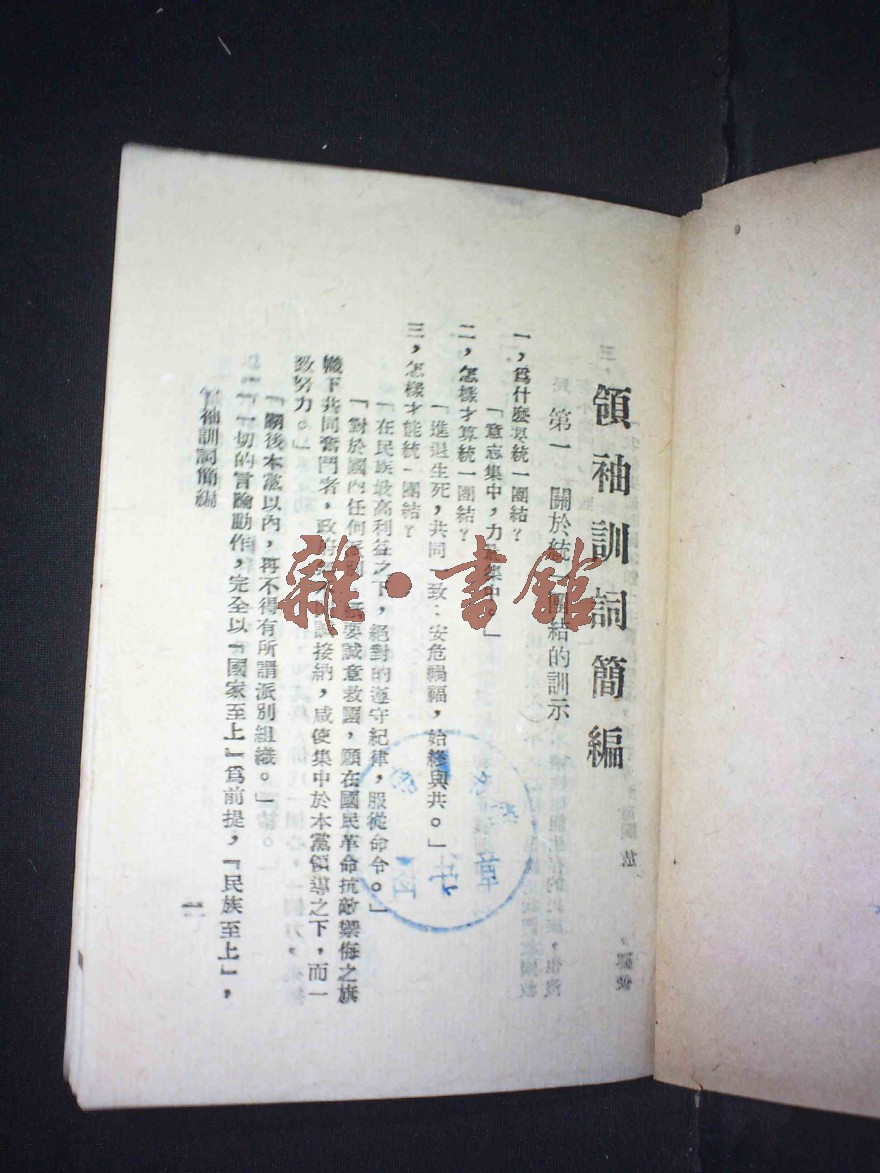 領袖訓詞簡編
第一 關於統一團結的訓示
一，爲什麼要統一團結？
「意志集中，力量集中。」
二，怎樣才算統一團結？
「進退生死，共同一致；安危禍福，始終與共。」
三，怎樣才能統一團結？
「在民族最高利益之下，絕對的遵守紀律，服從命令。」
「對於國內任何派別，要誠意救國，願在國民革命抗敵禦侮之旗
幟下共同奮鬥者，政府接納，咸使集中於本黨領導之下，而一
致努力。」
「嗣後本黨以內，再不得有所謂派別組織。」
「一切的言論動作，完全以「國家至上」爲前提，「民族至上」，
領袖訓詞簡編
一
雜·書館